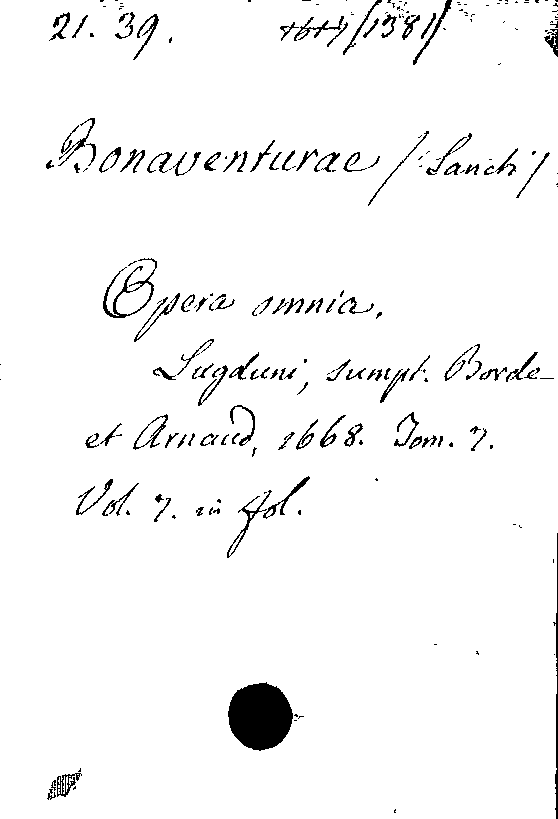 21. 39. (1381)
Bonaventurae /: Sancti /
Opera omnia.
Lugduni, sumpt. Borde
et Arnaud, 1668. Tom. 7.
Vol. 7. in fol.